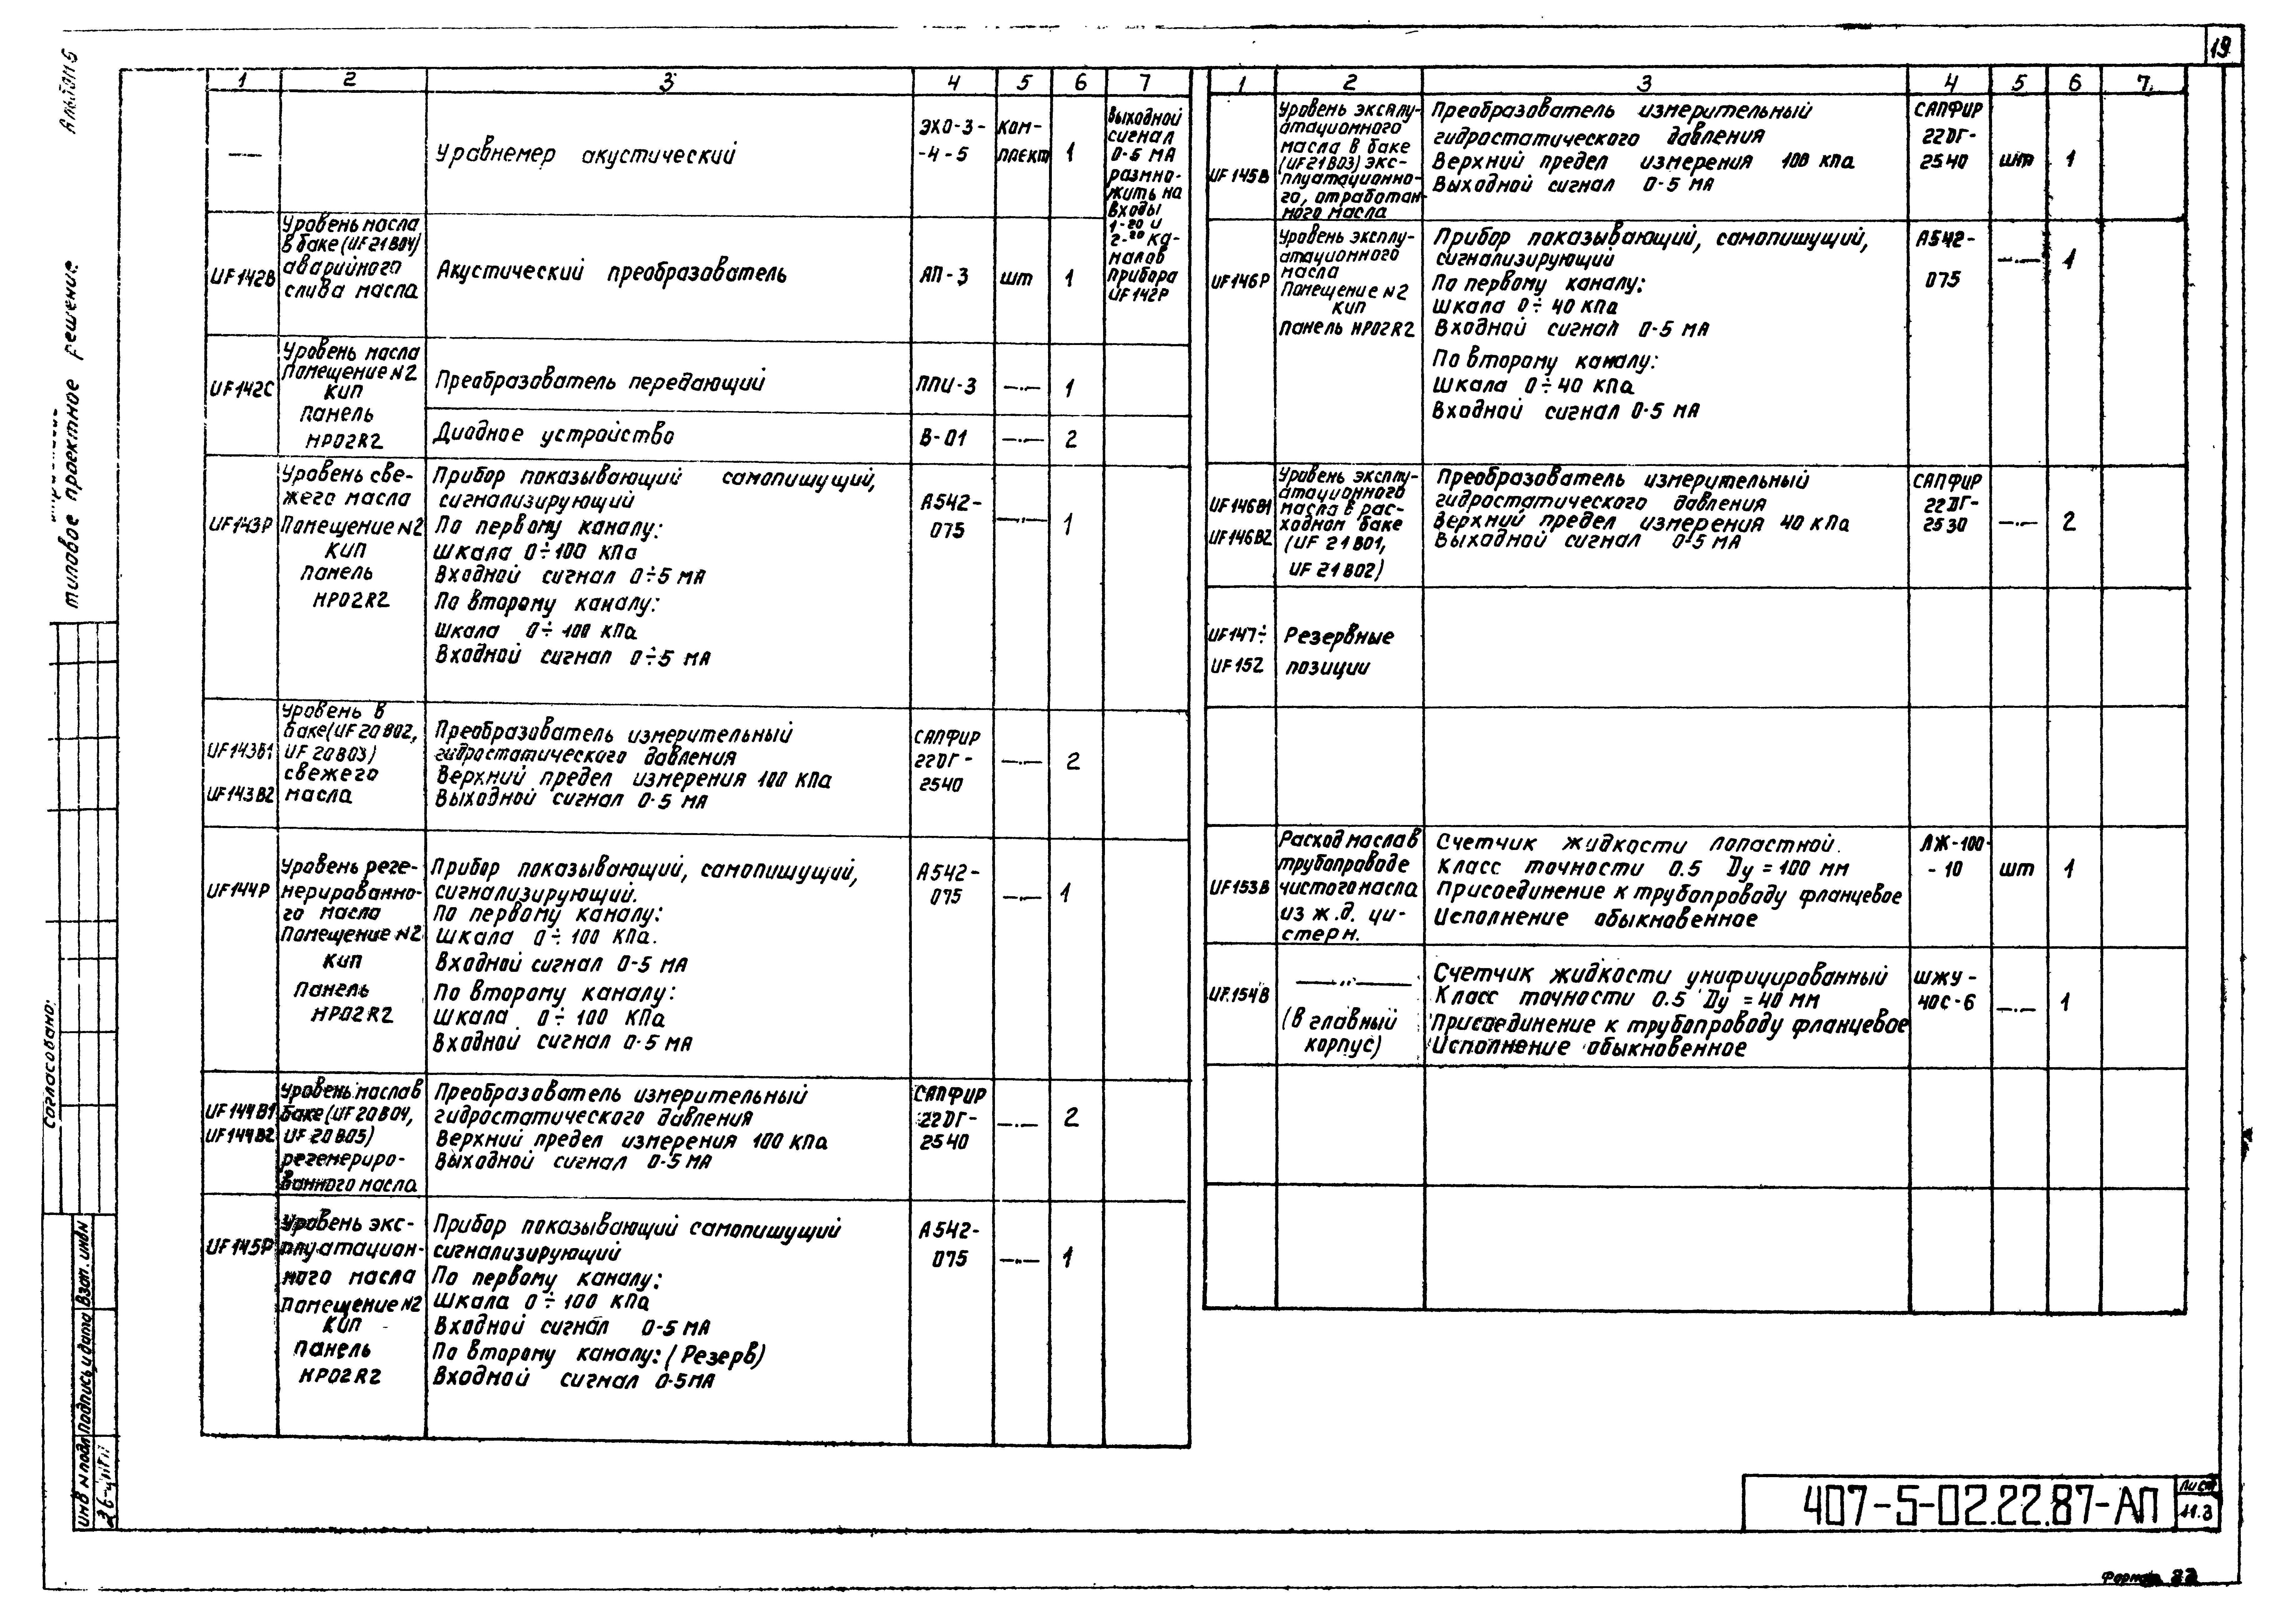 19
Альбом 5
типовое проектное решение
Согласовано:
Взап. инвN
Подпись и дата
ИНВ N подл
1 2 3 4 5 6 7
—
Уравнемер акустический
ЭХО-3-
-4-5
ком-
плект
1
Выходной
сигнал
0-5 МА
размно-
жить на
входы
1-20 и
2-20 ка-
налов
прибора
UF142P
UF142B
Уровень масла
в баке (UF21B04)
аварийного
слива масла
Акустический преобразователь
АП-3
шт
1
UF142C
Уровень масла
Помещение N2
КИП
Панель
HP02R2
Преобразователь передающий
ППИ-3
—·—
1
Диодное устройство
В-01
—·—
2
UF143P
Уровень све-
жего масла
Помещение N2
КИП
Панель
HP02R2
Прибор показывающий самопишущий,
сигнализирующий
По первому каналу:
Шкала 0÷100 кПа
Входной сигнал 0÷5 МА
По второму каналу:
Шкала 0÷100 кПа
Входной сигнал 0÷5 МА
А542-
075
—·—
1
UF143B1
UF143B2
Уровень в
баке (UF20B02,
UF20B03)
свежего
масла
Преобразователь измерительный
гидростатического давления
Верхний предел измерения 100 кПа
Выходной сигнал 0-5 МА
САПФИР
22ДГ-
2540
—·—
2
UF144P
Уровень реге-
нерированно-
го масла
Помещение N2
КИП
Панель
HP02R2
Прибор показывающий, самопишущий,
сигнализирующий.
По первому каналу:
Шкала 0÷100 кПа.
Входной сигнал 0-5 МА
По второму каналу:
Шкала 0÷100 кПа
Входной сигнал 0-5 МА
А542-
075
—·—
1
UF144B1
UF144B2
Уровень масла в
баке (UF20B04,
UF20B05)
регенериро-
ванного масла
Преобразователь измерительный
гидростатического давления
Верхний предел измерения 100 кПа
Выходной сигнал 0-5 МА
САПФИР
22ДГ-
2540
—·—
2
UF145P
Уровень экс-
плуатацион-
ного масла
Помещение N2
КИП
Панель
HP02R2
Прибор показывающий самопишущий
сигнализирующий
По первому каналу:
Шкала 0÷100 кПа
Входной сигнал 0-5 МА
По второму каналу: (Резерв)
Входной сигнал 0-5 МА
А542-
075
—·—
1
1 2 3 4 5 6 7
UF145B
Уровень эксплу-
атационного
масла в баке
(UF21B03) экс-
плуатационно-
го, отработан-
ного масла
Преобразователь измерительный
гидростатического давления
Верхний предел измерения 100 кПа
Выходной сигнал 0-5 МА
САПФИР
22ДГ-
2540
шт
1
UF146P
Уровень эксплу-
атационного
масла
Помещение N2
КИП
Панель HP02R2
Прибор показывающий, самопишущий,
сигнализирующий
По первому каналу:
Шкала 0÷40 кПа
Входной сигнал 0-5 МА
По второму каналу:
Шкала 0÷40 кПа
Входной сигнал 0-5 МА
А542-
075
—·—
1
UF146B1
UF146B2
Уровень эксплу-
атационного
масла в рас-
ходном баке
(UF21B01,
UF21B02)
Преобразователь измерительный
гидростатического давления
Верхний предел измерения 40 кПа
Выходной сигнал 0-5 МА
САПФИР
22ДГ-
2530
—·—
2
UF147÷
UF152
Резервные
позиции
UF153B
Расход масла в
трубопроводе
чистого масла
из ж.д. ци-
стерн.
Счетчик жидкости лопастной.
Класс точности 0.5 Dу = 100 мм
Присоединение к трубопроводу фланцевое
Исполнение обыкновенное
ЛЖ-100-
-10
шт
1
UF154B
—"—
(в главный
корпус)
Счетчик жидкости унифицированный
Класс точности 0.5 Dу = 40 мм
Присоединение к трубопроводу фланцевое
Исполнение обыкновенное
ШЖУ-
40С-6
—·—
1
407-5-02.22.87-АП
Лист
11.3
Формат